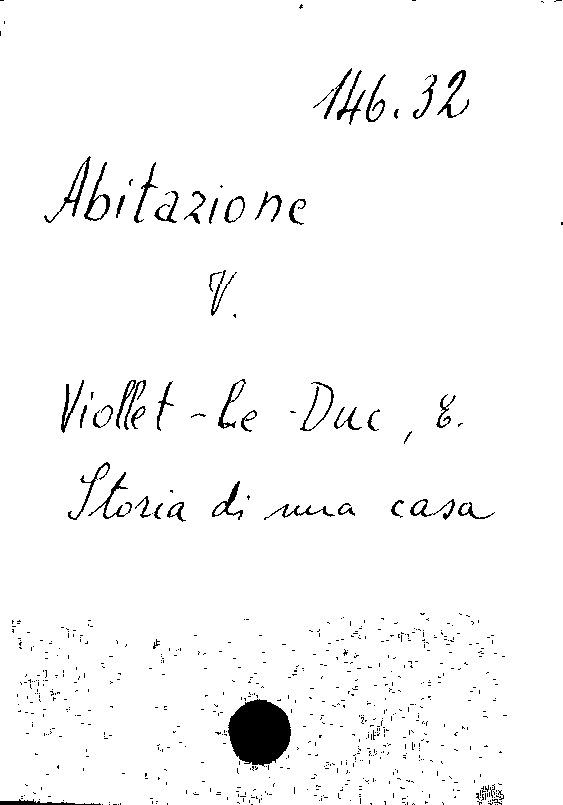 146.32
Abitazione
V.
Viollet-Le-Duc, E.
Storia di una casa